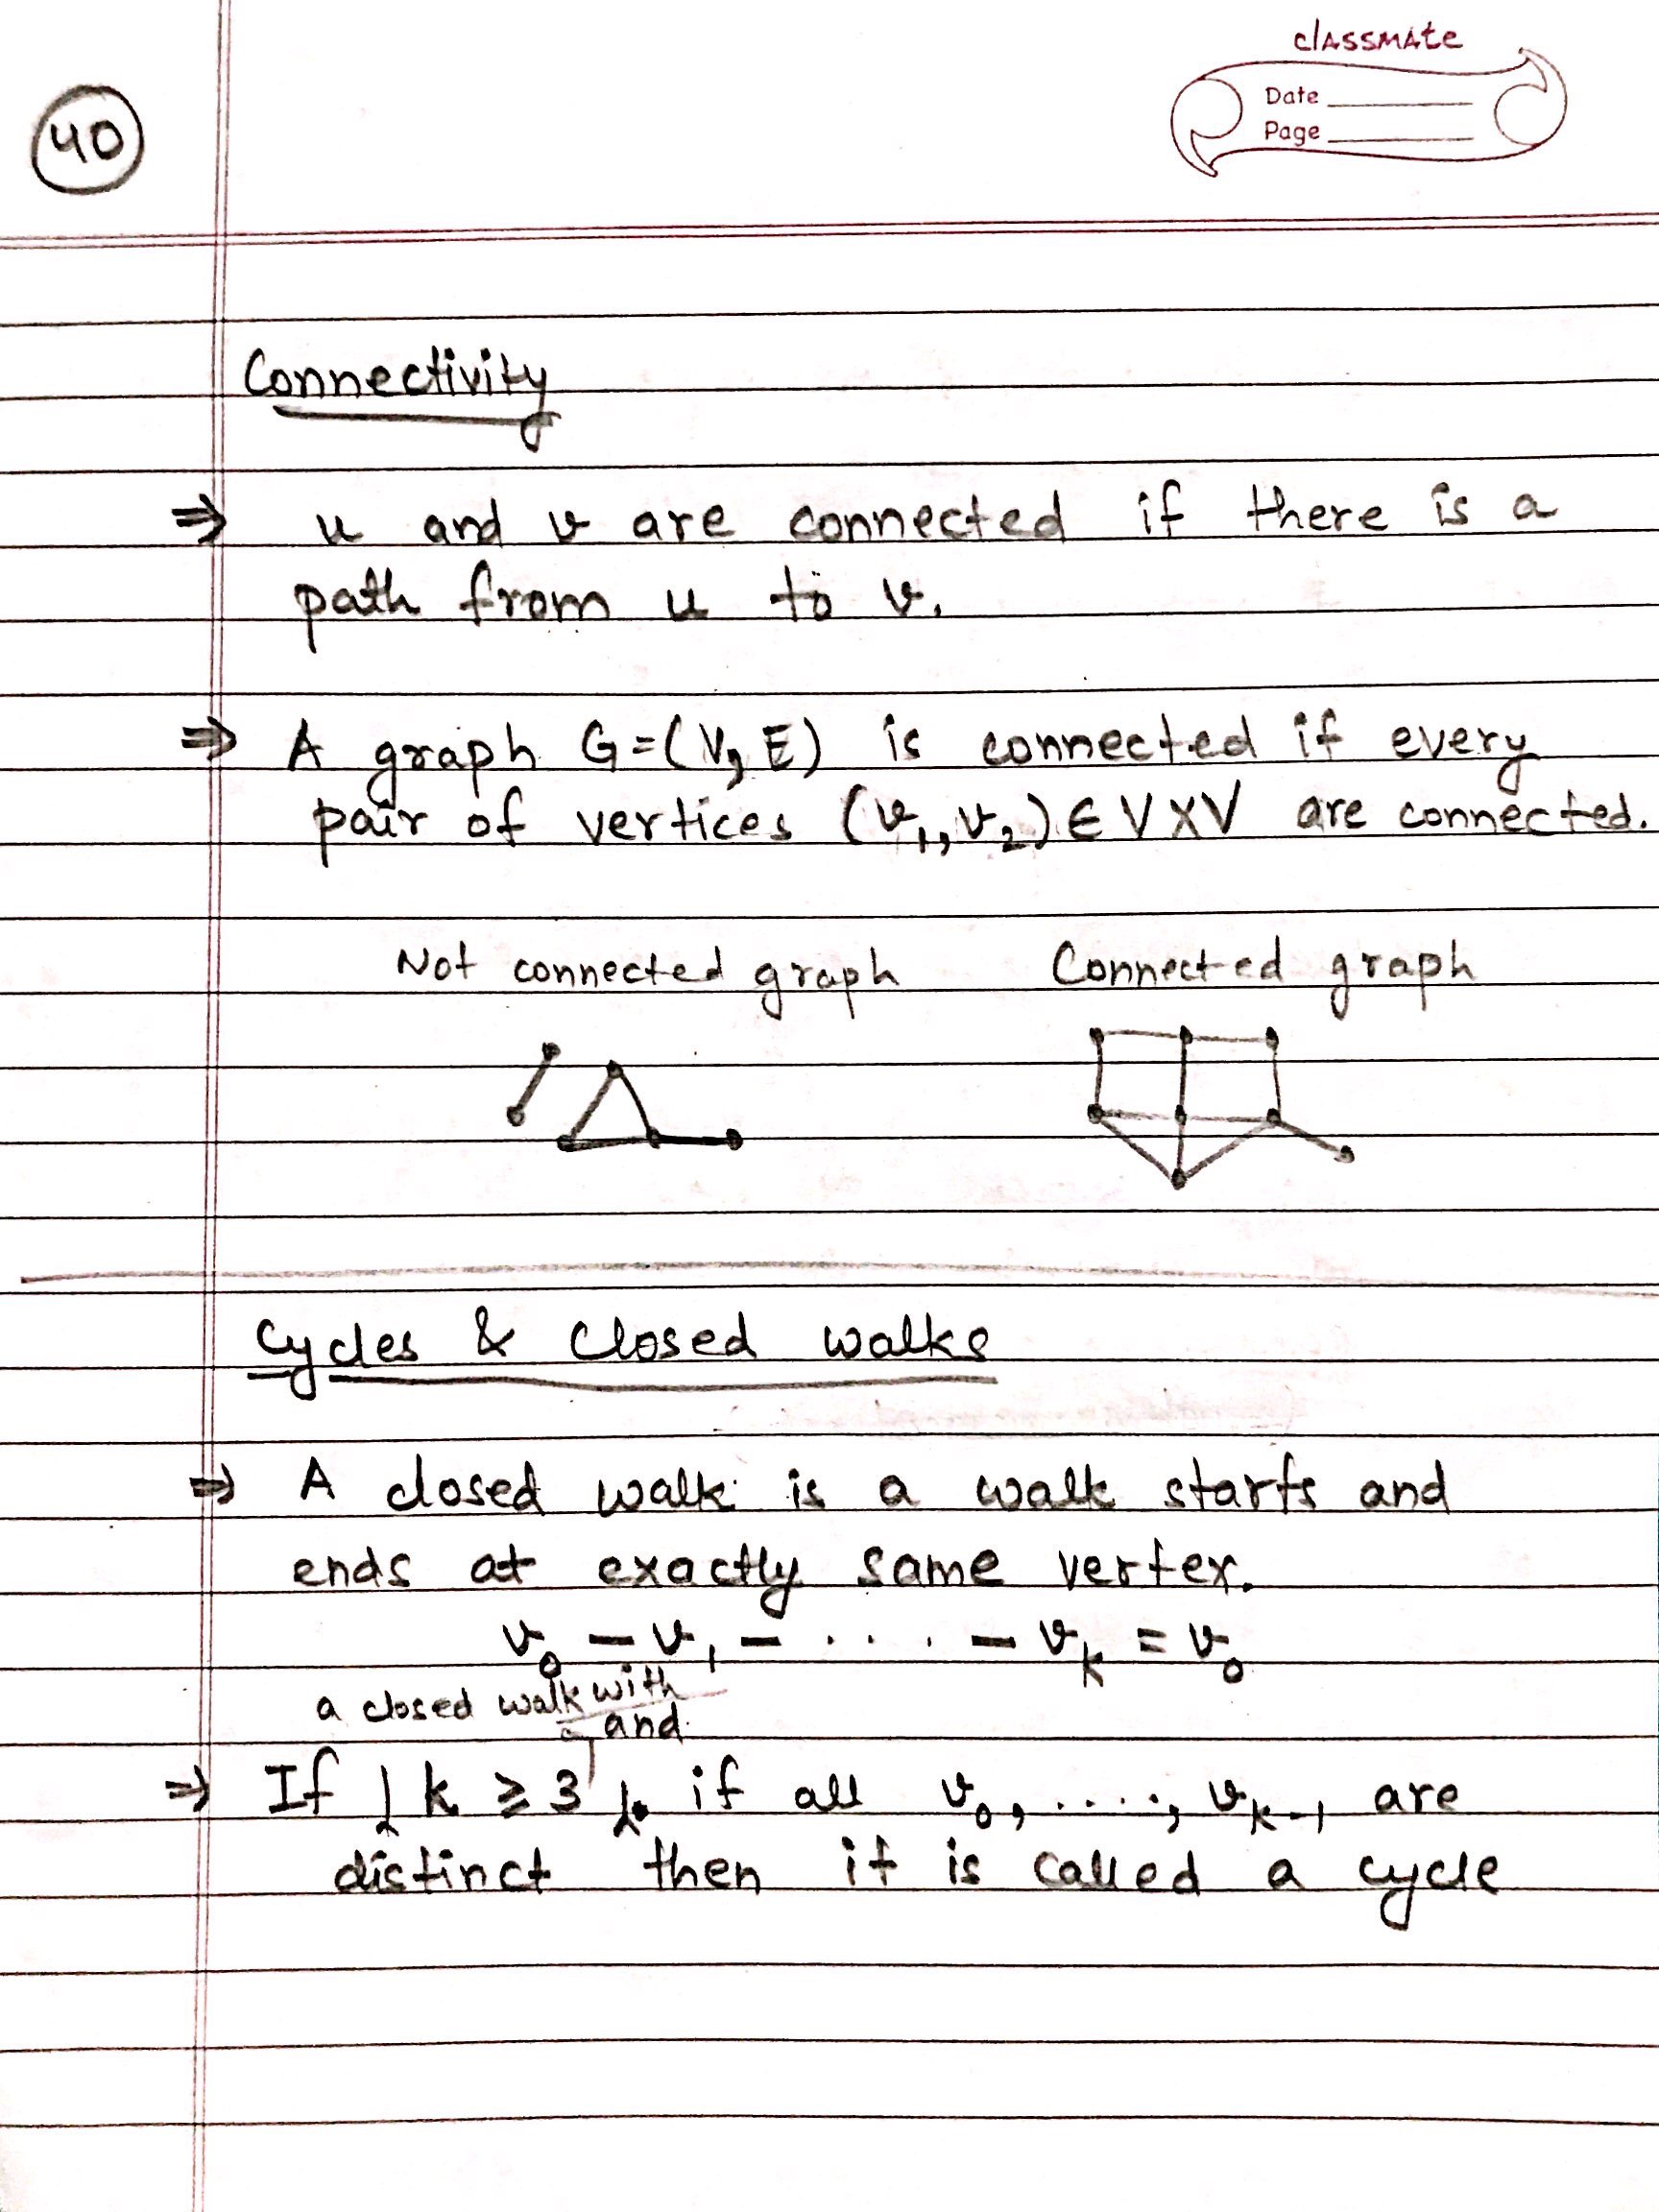 classmate
Date
Page
40
Connectivity
⇒ u and v are connected if there is a
path from u to v.
⇒ A graph G=(V, E) is connected if every
pair of vertices (v₁, v₂) ∈ V X V are connected.
Not connected graph Connected graph
Cycles & Closed walks
⇒ A closed walk is a walk starts and
ends at exactly same vertex.
v₀ – v₁ – .... – vₖ = v₀
a closed walk with
and
⇒ If k ≥ 3 if all v₀, ...., vₖ₋₁ are
distinct then it is called a cycle